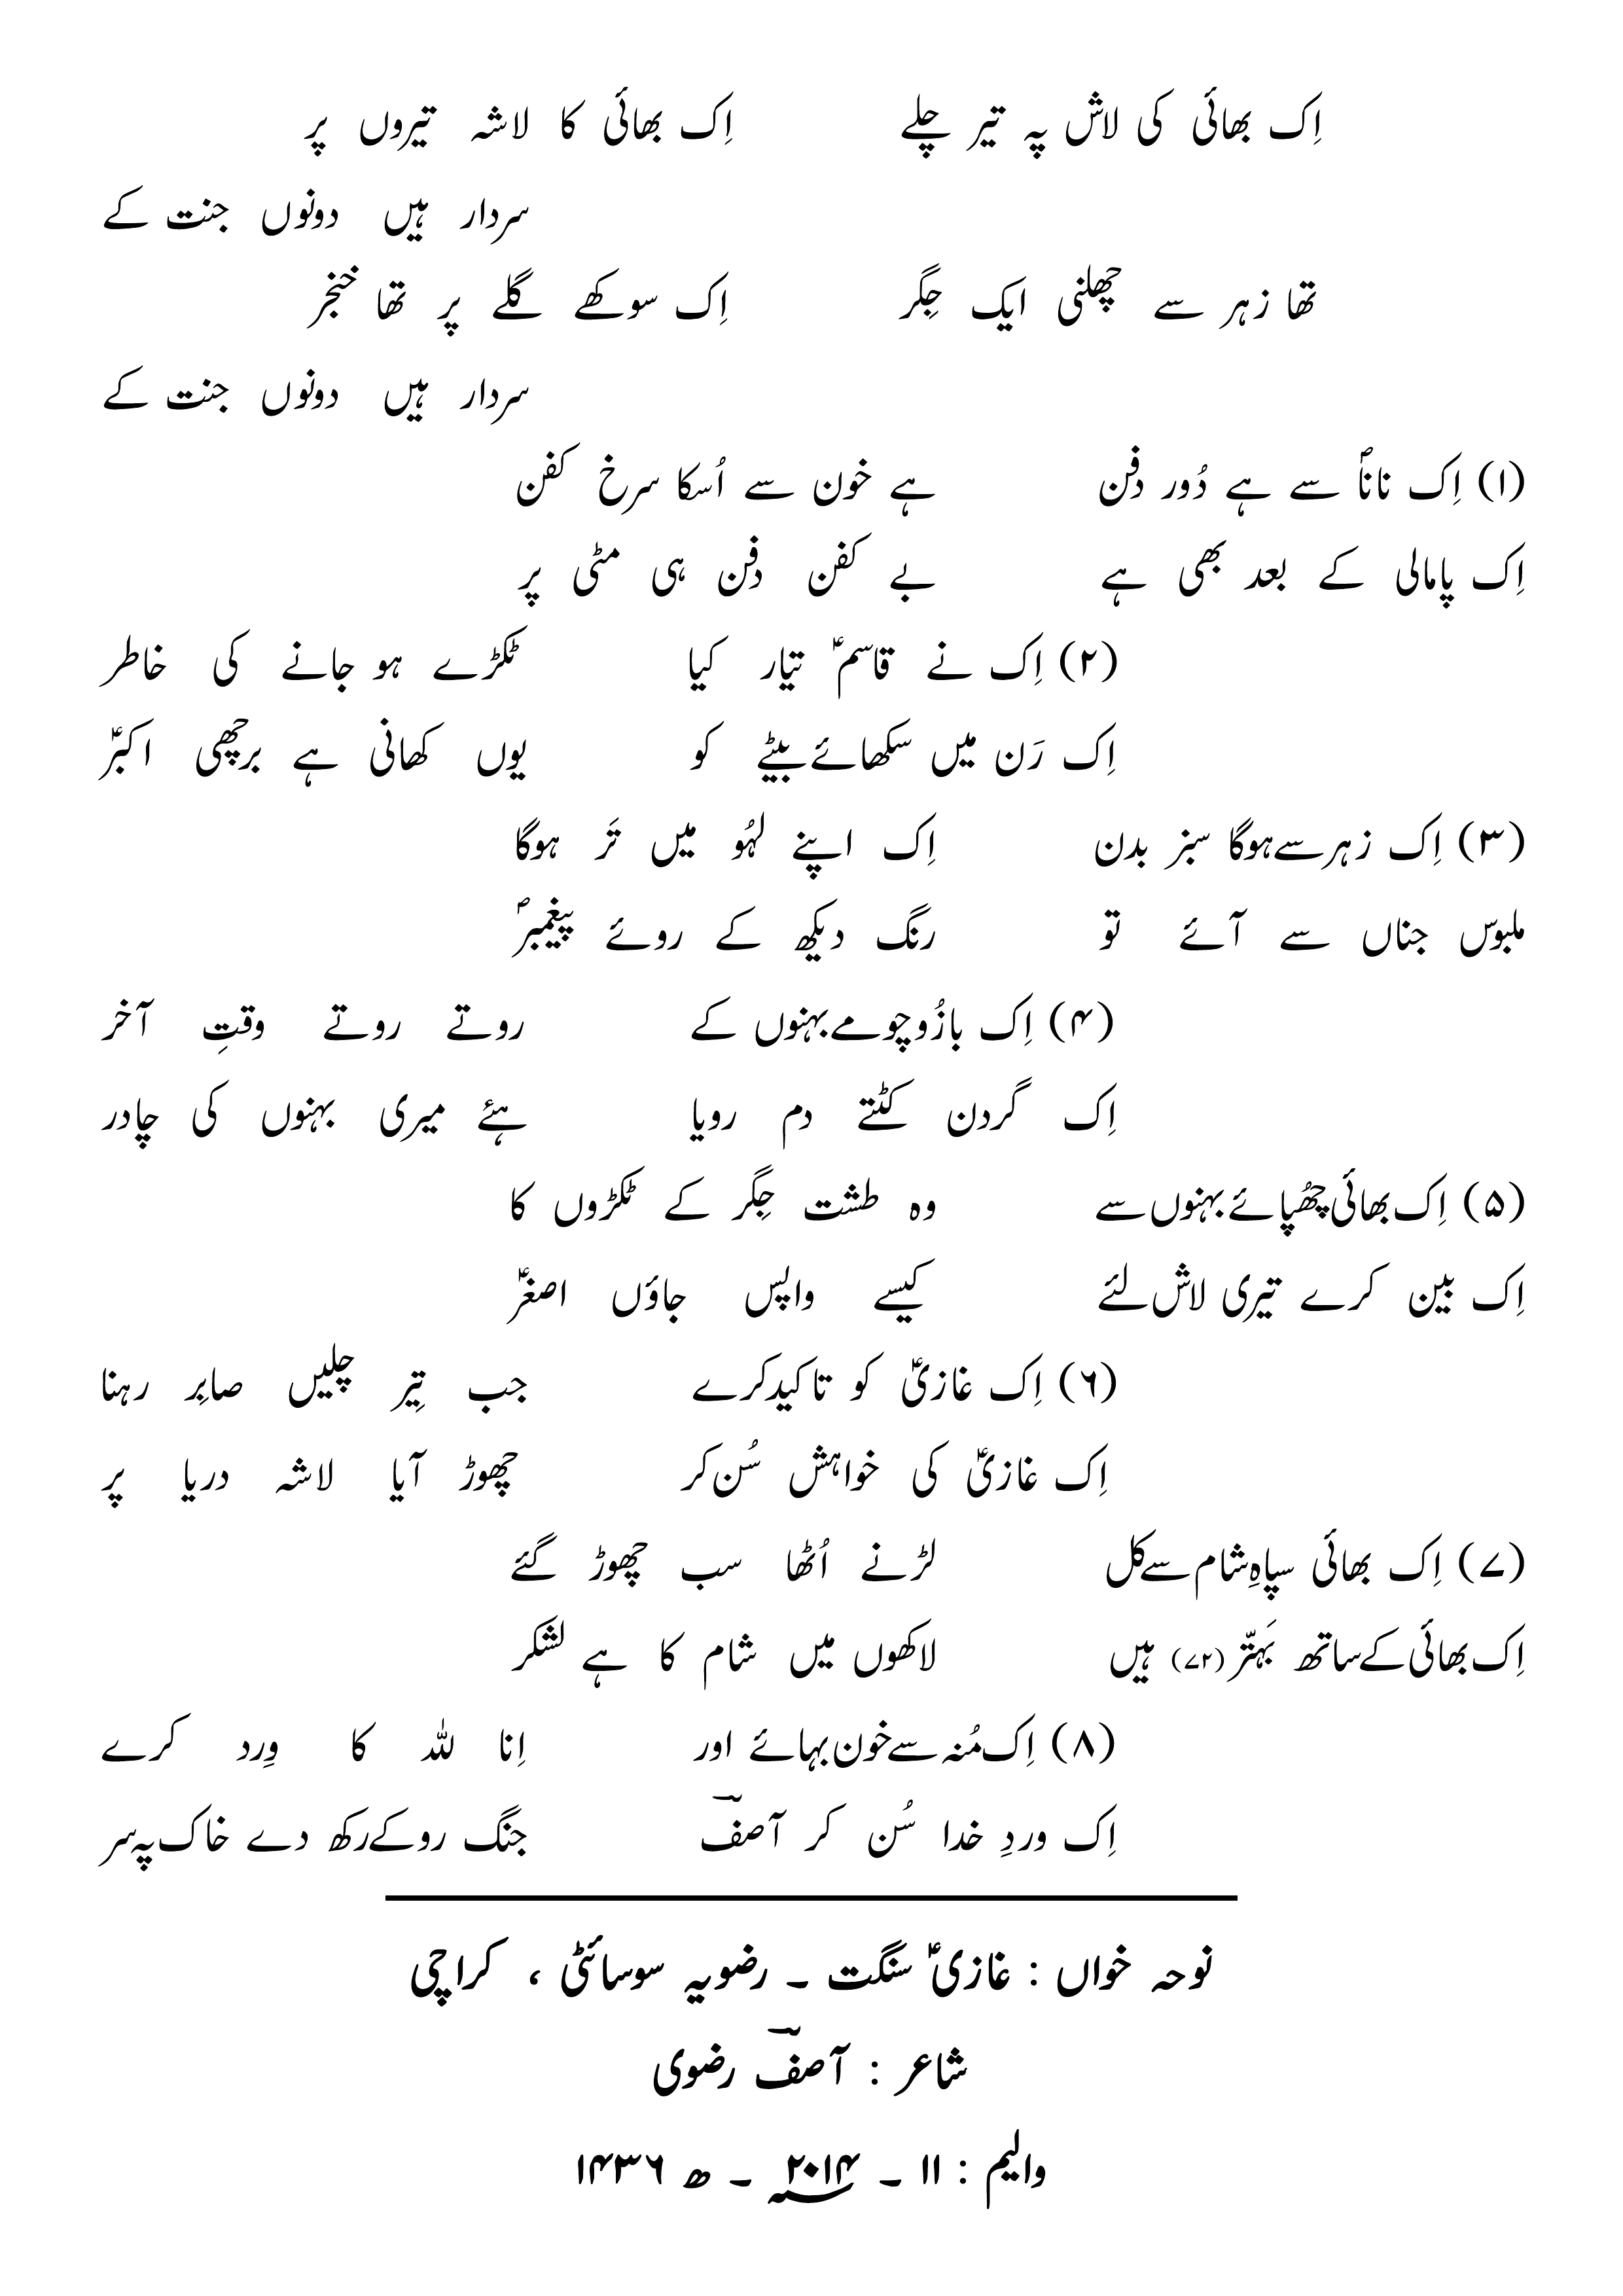 اِک بھائی کی لاش پہ تیر چلے اِک بھائی کا لاشہ تیروں پر
سردار ہیں دونوں جنت کے
تھا زہر سے چھلنی ایک جِگر اِک سوکھے گلے پر تھا خنجر
سردار ہیں دونوں جنت کے
(۱) اِک ناناؐ سے ہے دُور دفن ہے خون سے اُسکا سرخ کفن
اِک پامالی کے بعد بھی ہے بے کفن دفن ہی مٹی پر
(۲) اِک نے قاسمؑ تیار کیا ٹکڑے ہو جانے کی خاطر
اِک رَن میں سکھائے بیٹے کو یوں کھانی ہے برچھی اکبرؑ
(۳) اِک زہر سے ہوگا سبز بدن اِک اپنے لہُو میں تَر ہوگا
ملبوس جناں سے آئے تو رنگ دیکھ کے روئے پیغمبرؐ
(۴) اِک بازُو چومے بہنوں کے روتے روتے وقتِ آخر
اِک گردن کٹتے دم رویا ہئے میری بہنوں کی چادر
(۵) اِک بھائی چھُپائے بہنوں سے وہ طشت جِگر کے ٹکڑوں کا
اِک بین کرے تیری لاش لئے کیسے واپس جاؤں اصغرؑ
(۶) اِک غازیؑ کو تاکید کرے جب تِیر چلیں صابِر رہنا
اِک غازیؑ کی خواہش سُن کر چھوڑ آیا لاشہ دریا پر
(۷) اِک بھائی سپاہِ شام سے کل لڑنے اُٹھا سب چھوڑ گئے
اِک بھائی کے ساتھ بَہتّر (۷۲) ہیں لاکھوں میں شام کا ہے لشکر
(۸) اِک مُنہ سے خون بہائے اور اِنا للہ کا وِرد کرے
اِک وردِ خدا سُن کر آصفؔ جنگ روکے رکھ دے خاک پہ سر
نوحہ خواں : غازیؑ سنگت ۔ رضویہ سوسائٹی ، کراچی
شاعر : آصفؔ رضوی
والیم : ۱۱ ۔ ؁۲۰۱۴ ۔ ھ ۱۴۳۶